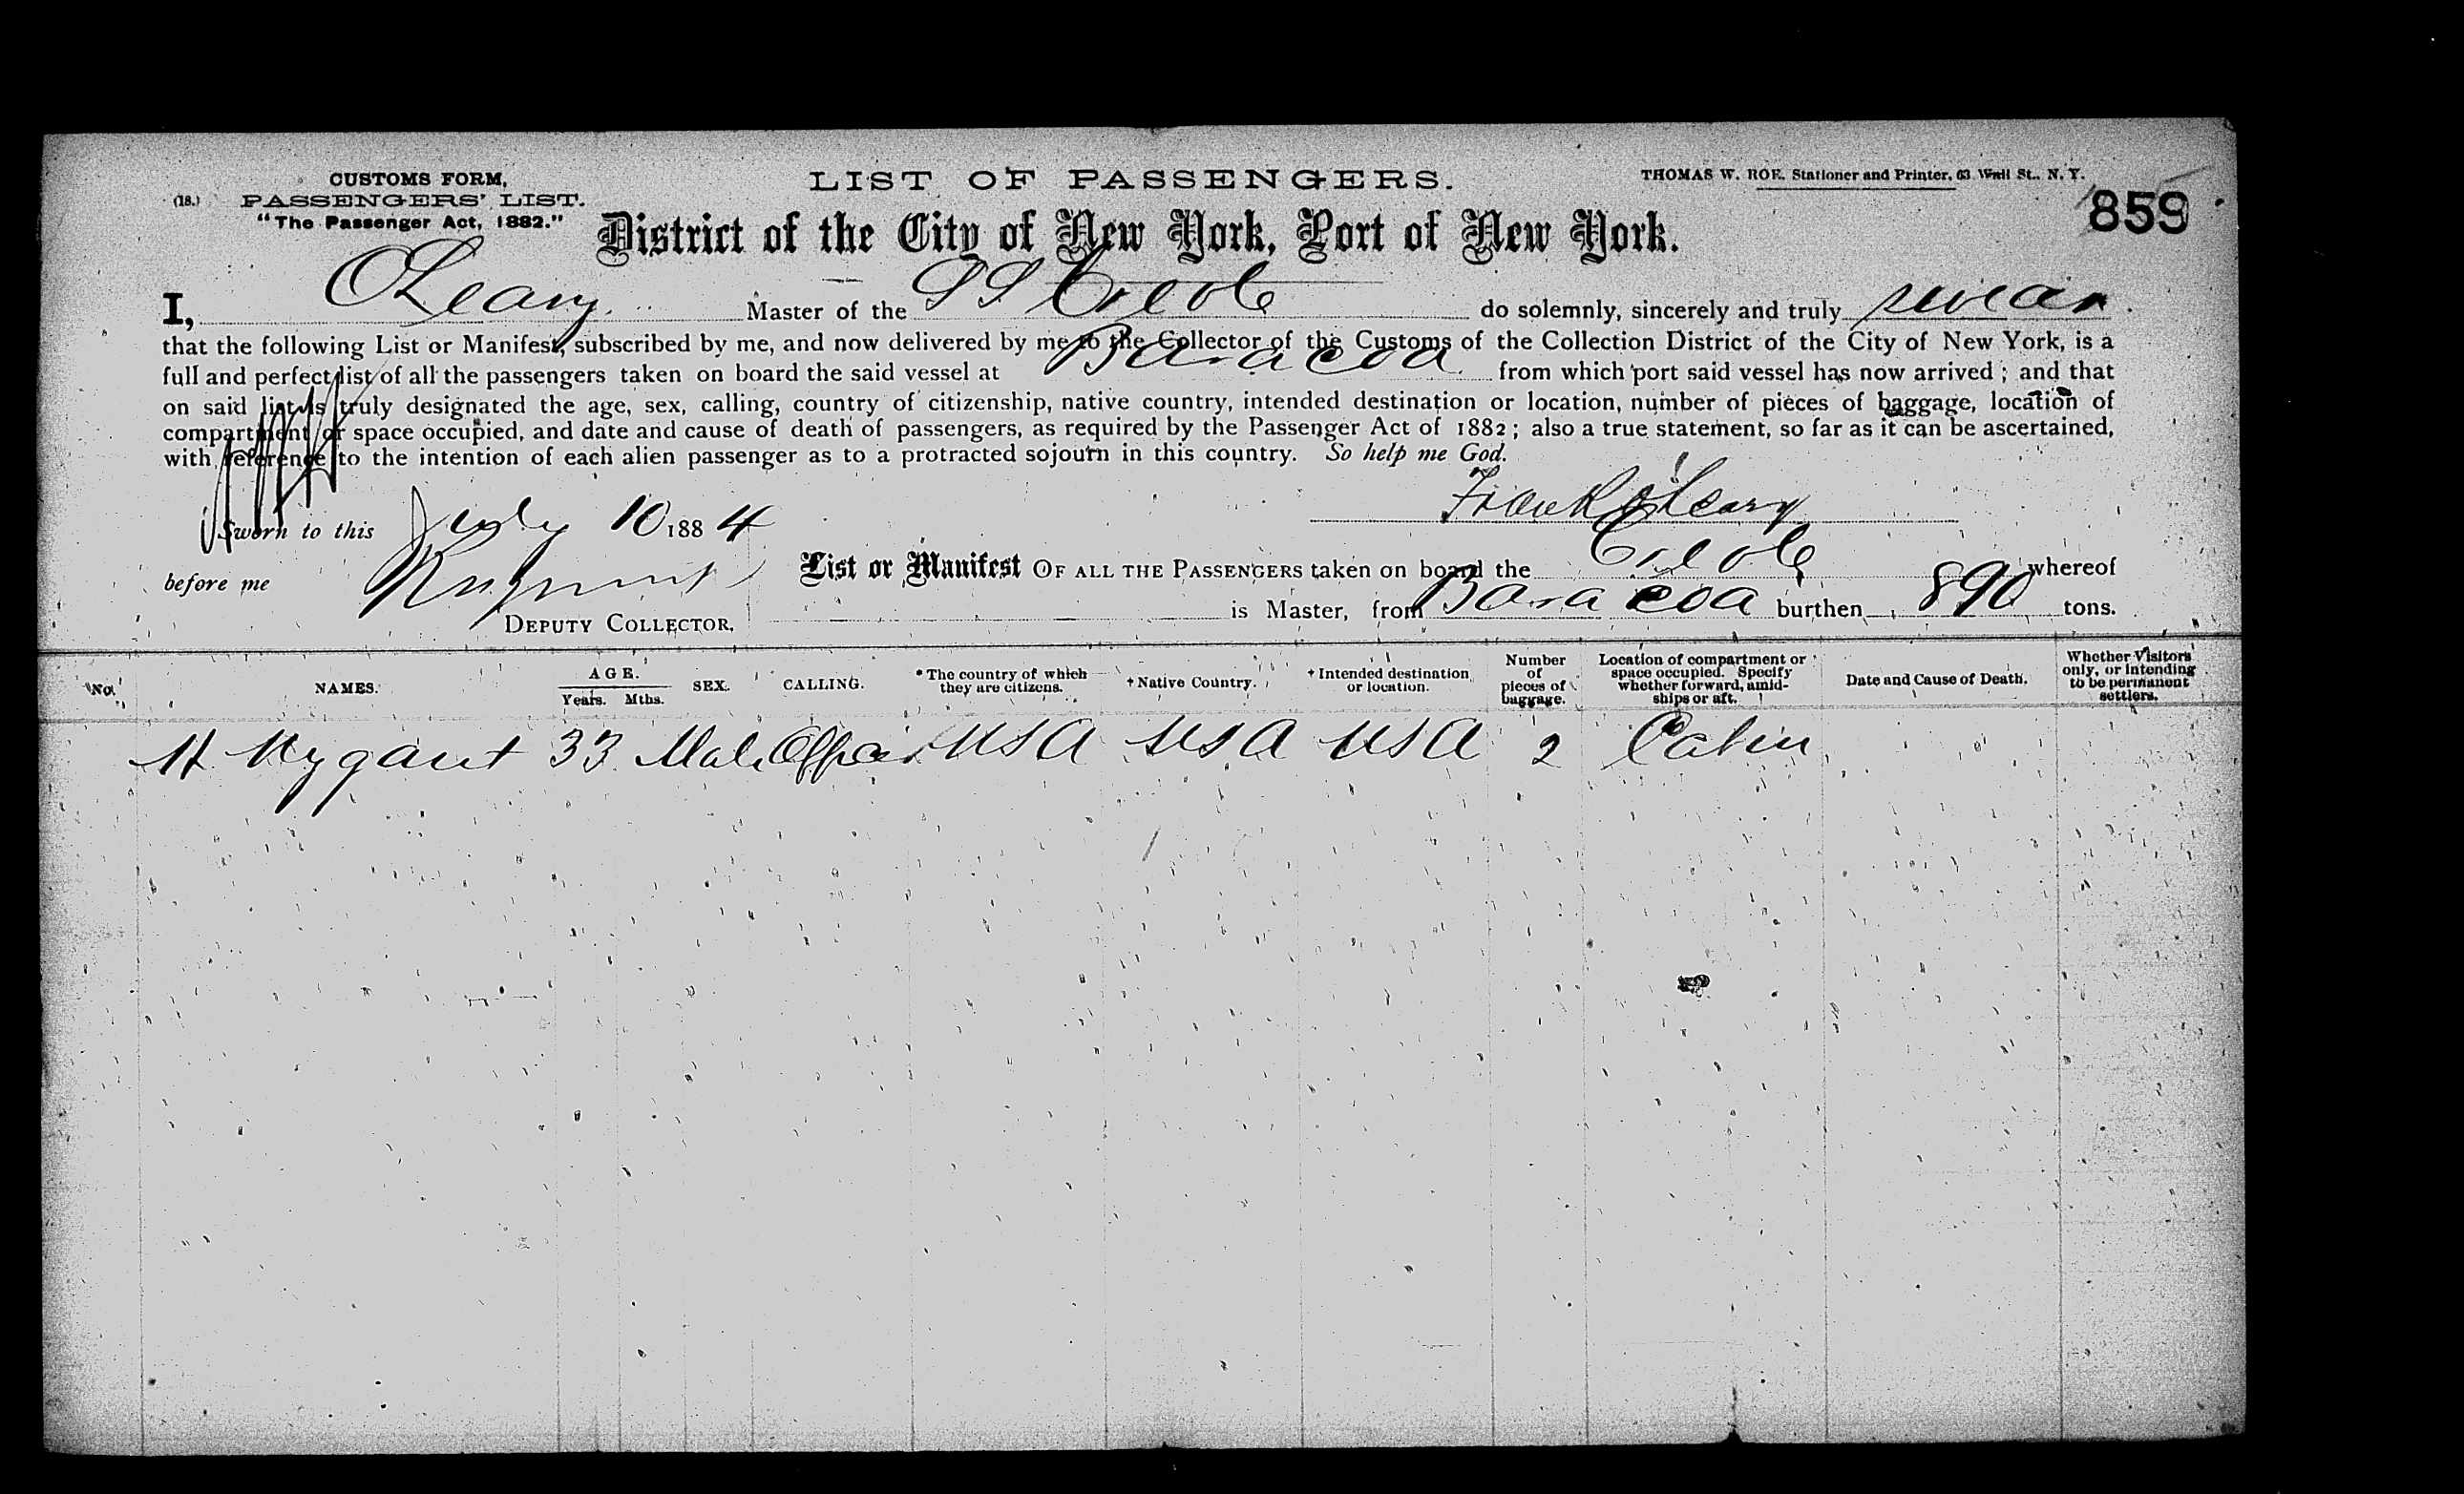 CUSTOMS FORM,
(18.) PASSENGERS' LIST.
"The Passenger Act, 1882."
LIST OF PASSENGERS.
THOMAS W. ROE. Stationer and Printer, 63 Wall St., N. Y.
859
District of the City of New York, Port of New York.
I, O'Leary Master of the SS Creole do solemnly, sincerely and truly swear
that the following List or Manifest, subscribed by me, and now delivered by me to the Collector of the Customs of the Collection District of the City of New York, is a
full and perfect list of all the passengers taken on board the said vessel at Baracoa from which port said vessel has now arrived; and that
on said list is truly designated the age, sex, calling, country of citizenship, native country, intended destination or location, number of pieces of baggage, location of
compartment or space occupied, and date and cause of death of passengers, as required by the Passenger Act of 1882; also a true statement, so far as it can be ascertained,
with reference to the intention of each alien passenger as to a protracted sojourn in this country. So help me God.
Frank O'Leary
Sworn to this July 10 1884
before me
DEPUTY COLLECTOR.
List or Manifest OF ALL THE PASSENGERS taken on board the Creole whereof
is Master, from Baracoa burthen 890 tons.
No. NAMES. AGE. Years. Mths. SEX. CALLING. *The country of which they are citizens. †Native Country. †Intended destination or location. Number of pieces of baggage. Location of compartment or space occupied. Specify whether forward, amidships or aft. Date and Cause of Death. Whether Visitors only, or intending to be permanent settlers.
H 33 Male USA USA USA 2 Cabin